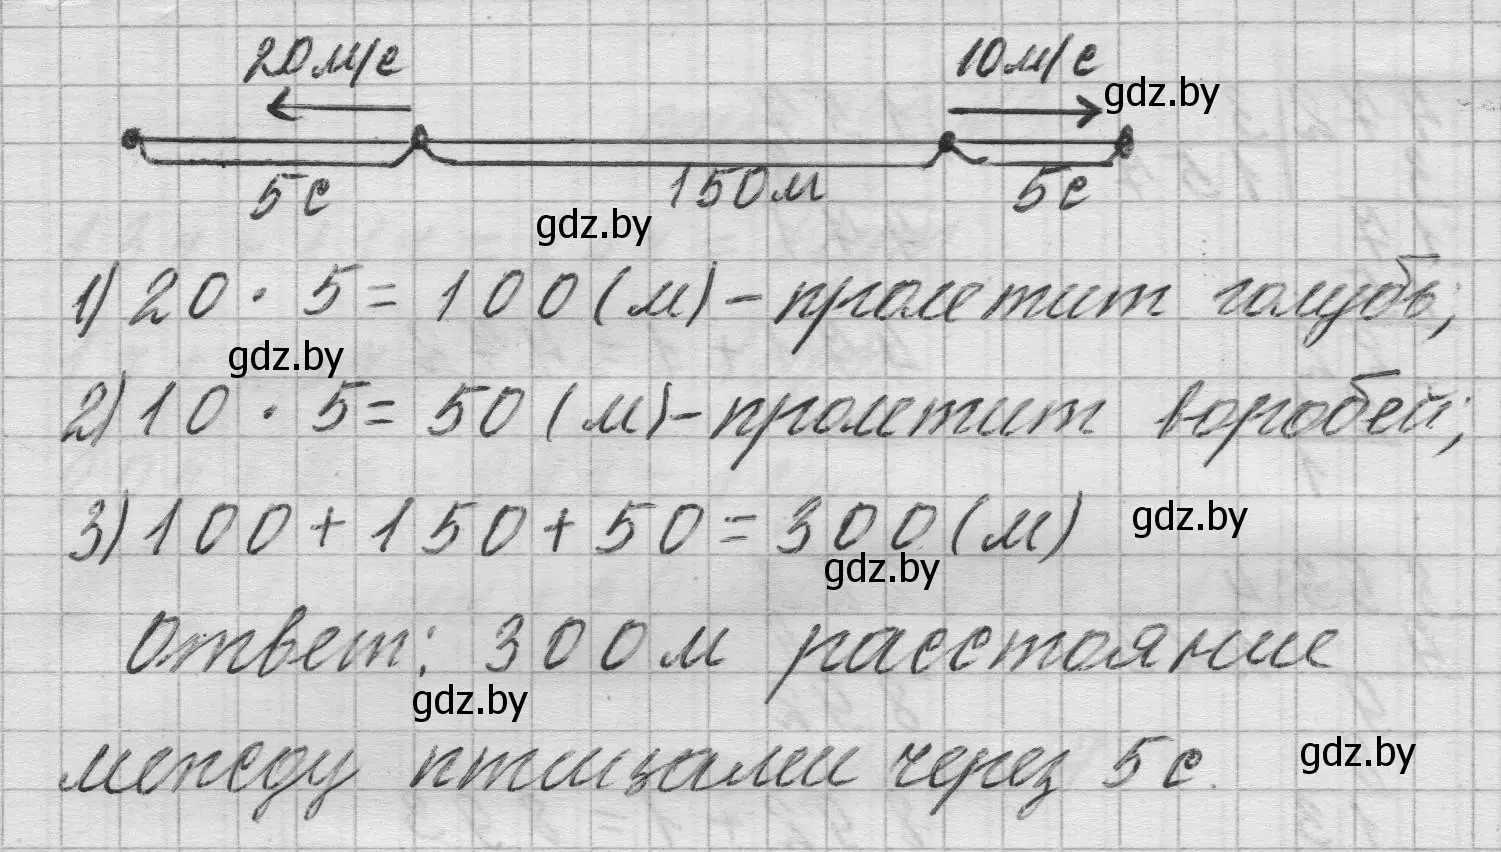 20м/с 10м/с
gdz.by
5с 150м 5с
gdz.by
1) 20 · 5 = 100 (м) - пролетит голубь;
gdz.by
2) 10 · 5 = 50 (м) - пролетит воробей;
3) 100 + 150 + 50 = 300 (м) gdz.by
gdz.by
Ответ: 300 м расстояние
gdz.by
между птицами через 5 с. gdz.by